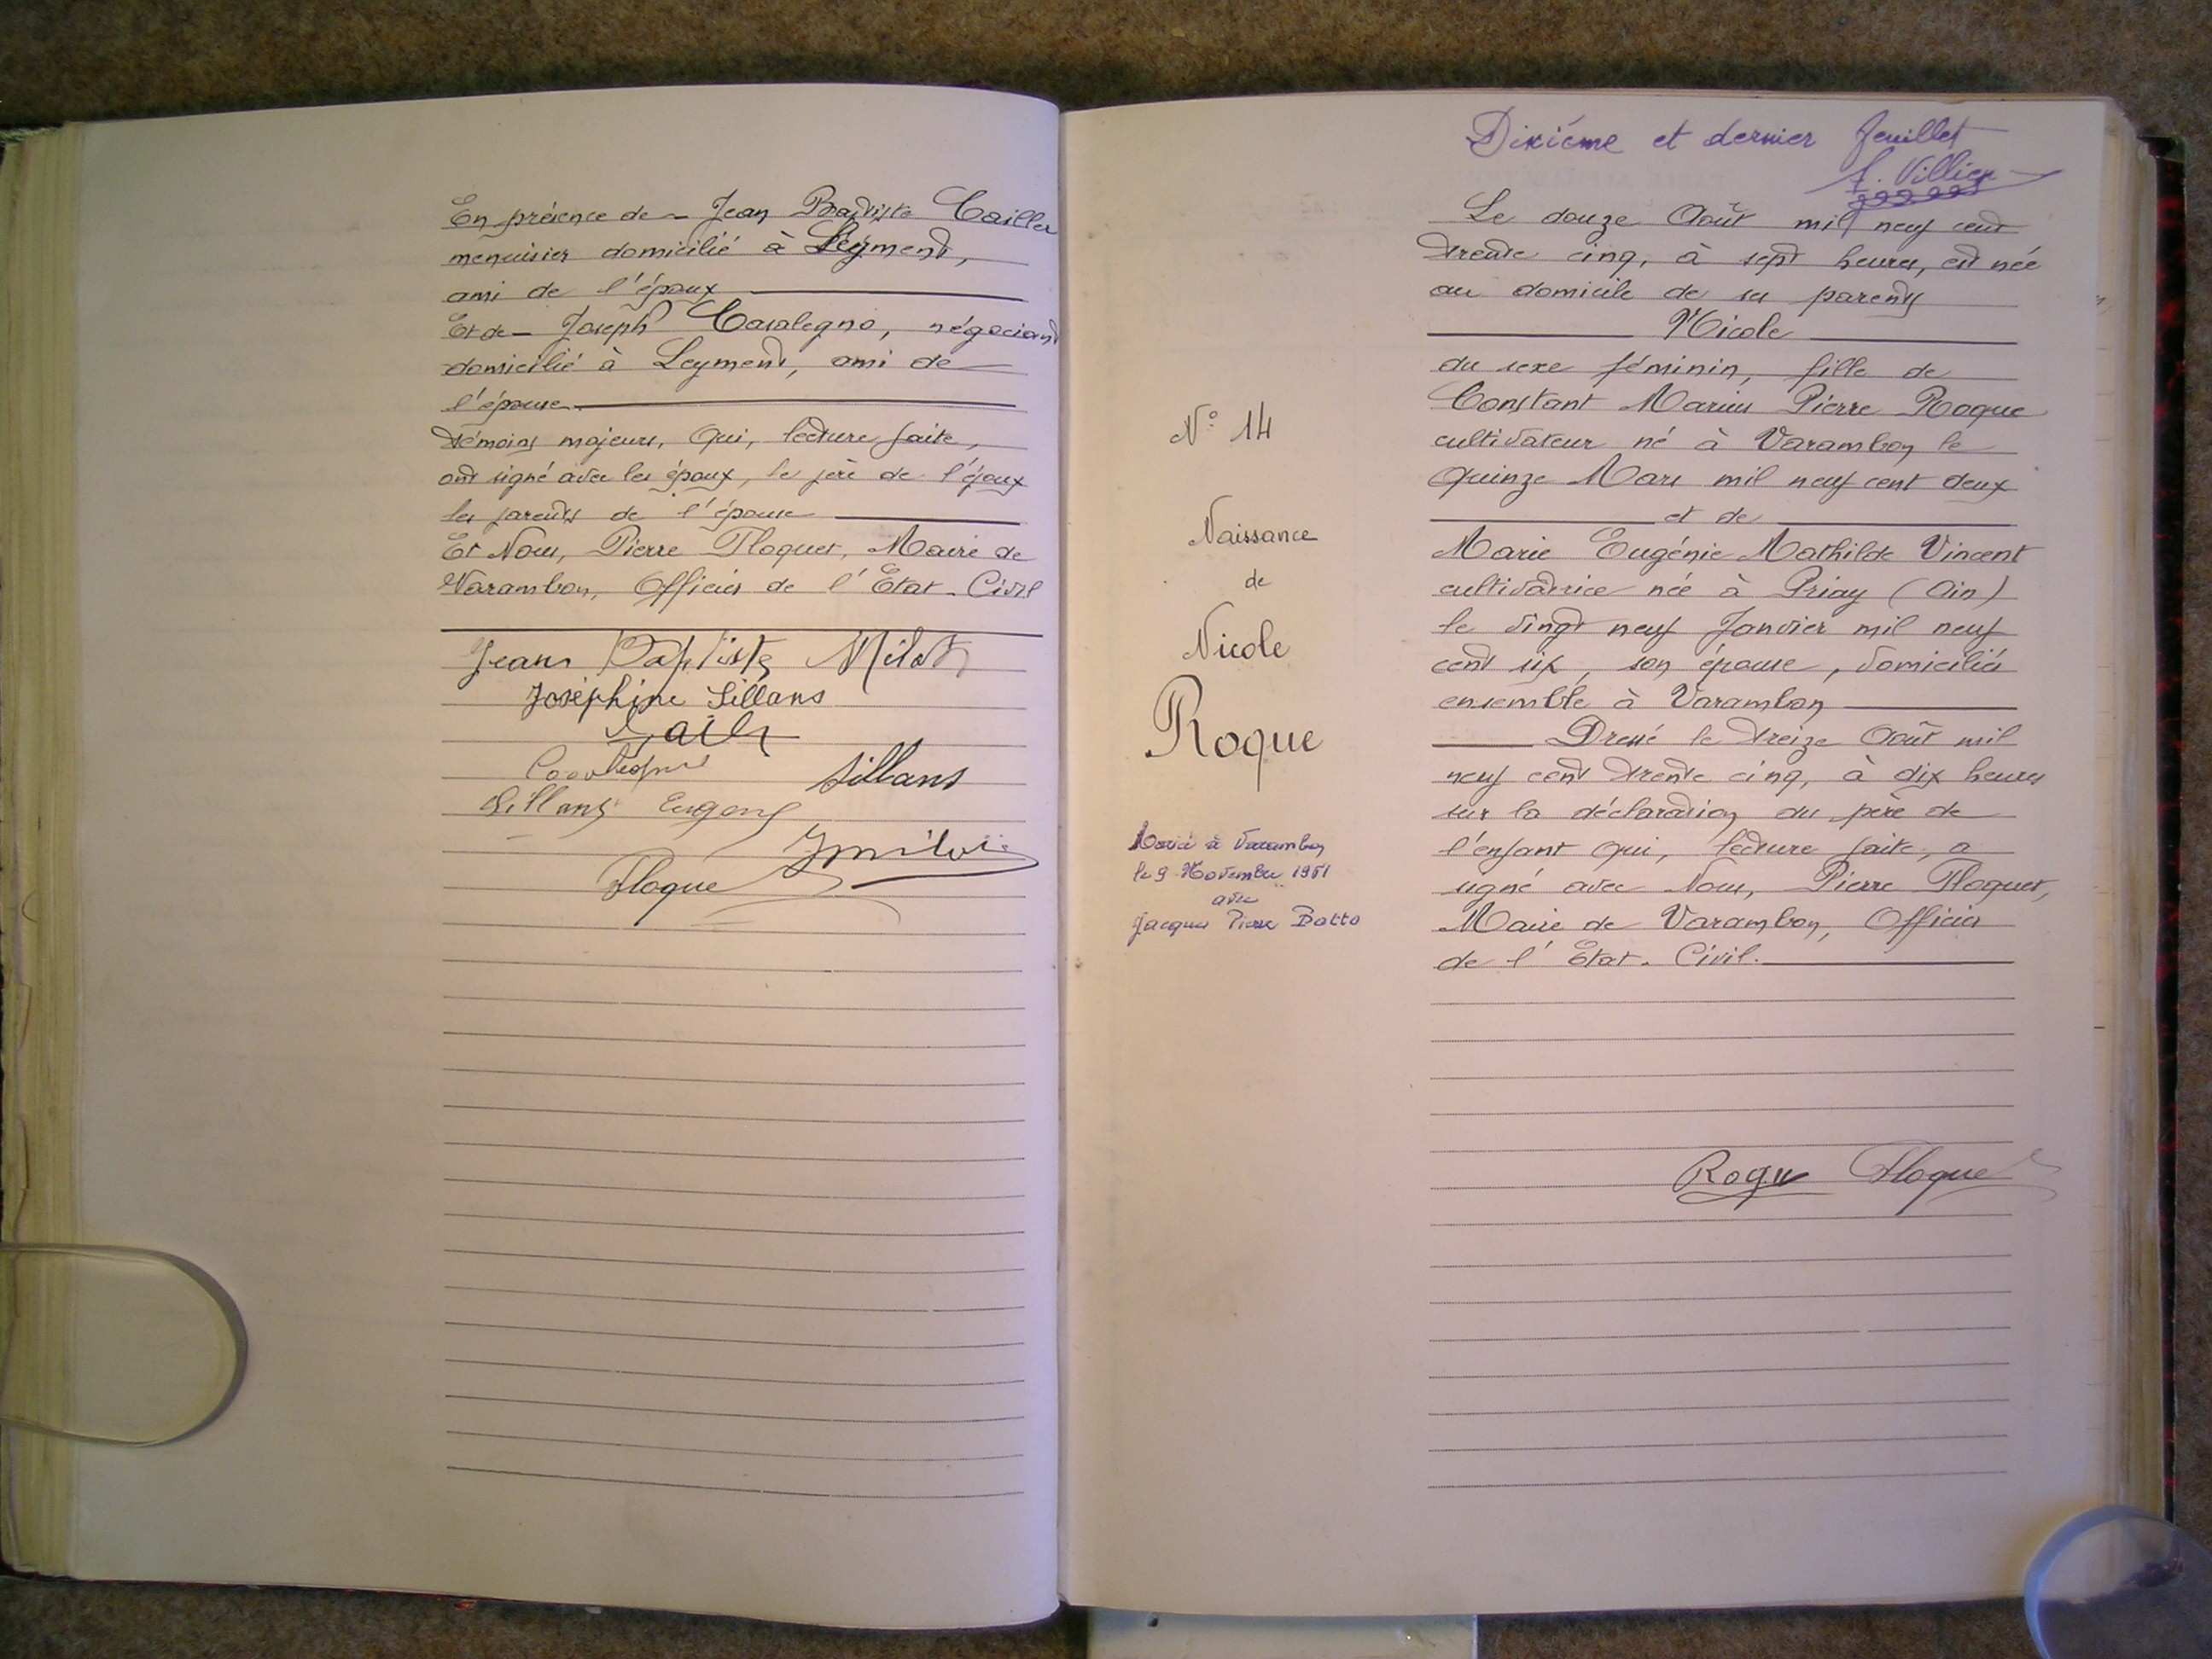 En présence de – Jean Baptiste Cailler
menuisier domicilié à Leyment,
ami de l'époux
Et de – Joseph Casalegno, négociant
domicilié à Leyment, ami de
l'épouse
témoins majeurs, Qui, lecture faite,
ont signé avec les époux, le père de l'époux
les parents de l'épouse
Et Nous, Pierre Floquet, Maire de
Varambon, Officier de l'Etat-Civil
Jean Baptiste
Joséphine Sillans
Sillans
Sillans
Floquet
Dixième et dernier feuillet
Villier
Le douze Août mil neuf cent
trente cinq, à sept heures, est née
au domicile de ses parents
Nicole
du sexe féminin, fille de
Constant Marius Pierre Roque
cultivateur né à Varambon le
quinze Mars mil neuf cent deux
et de
Marie Eugénie Mathilde Vincent
cultivatrice née à Priay (Ain)
le vingt neuf Janvier mil neuf
cent six, son épouse, domiciliés
ensemble à Varambon
Dressé le treize Août mil
neuf cent trente cinq, à dix heures
sur la déclaration du père de
l'enfant qui, lecture faite, a
signé avec Nous, Pierre Floquet,
Maire de Varambon, Officier
de l'Etat-Civil.
Roque Floquet
N° 14
Naissance
de
Nicole
Roque
Mariée à Varambon
le 9 Novembre 1951
avec
Jacques Pierre Botto